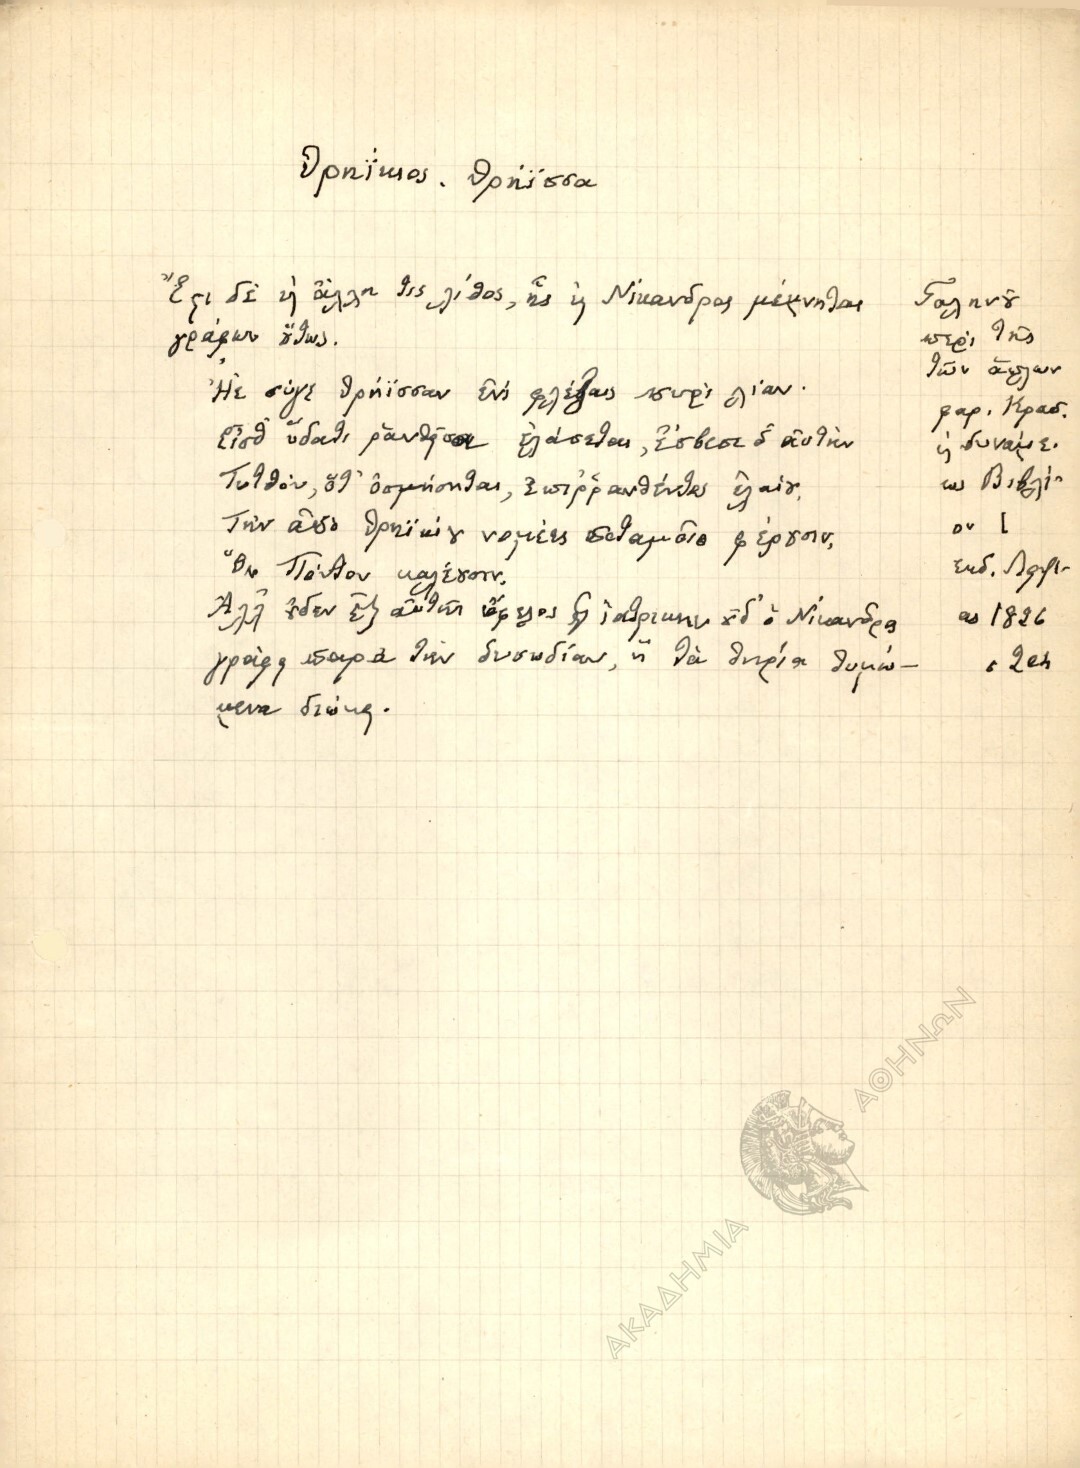 Θρηΐκιος. Θρήϊσσα
Ἔστι δὲ καὶ ἄλλη τις λίθος, ἧς καὶ Νίκανδρος μέμνηται
γράφων οὕτως.
Ἠὲ σύγε θρήϊσσαν ἐνὶ φλέξαις πυρὶ λίαν.
Εἶσθ' ὕδατι ῥανθεῖσα ἐλάσεται, ἔσβεσε δ' αὐτὴν
Τυτθὸν, ὅτ' ὀσμήσηται, ἐπιῤῥανθέντος ἐλαίου,
Τὴν ἀπὸ θρηϊκίου νομέες ποταμοῖο φέρουσιν,
Ὃν Πόντον καλέουσιν.
Ἀλλ' οὐδὲν ἐξ αὐτῆς ὄφελος εἰς ἰατρικὴν οὐδ' ὁ Νίκανδρος
γράφει παρὰ τὴν δυσωδίαν, ἣ τὰ θηρία θυμιώ-
μενα διώκει.
Γαληνοῦ
περὶ τῆς
τῶν ἁπλῶν
φαρ. Κρασ.
καὶ δυνάμε.
ως Βιβλί-
ον Ι
εκδ. Λειψί-
ας 1826
σ 204
ΑΚΑΔΗΜΙΑ ΑΘΗΝΩΝ